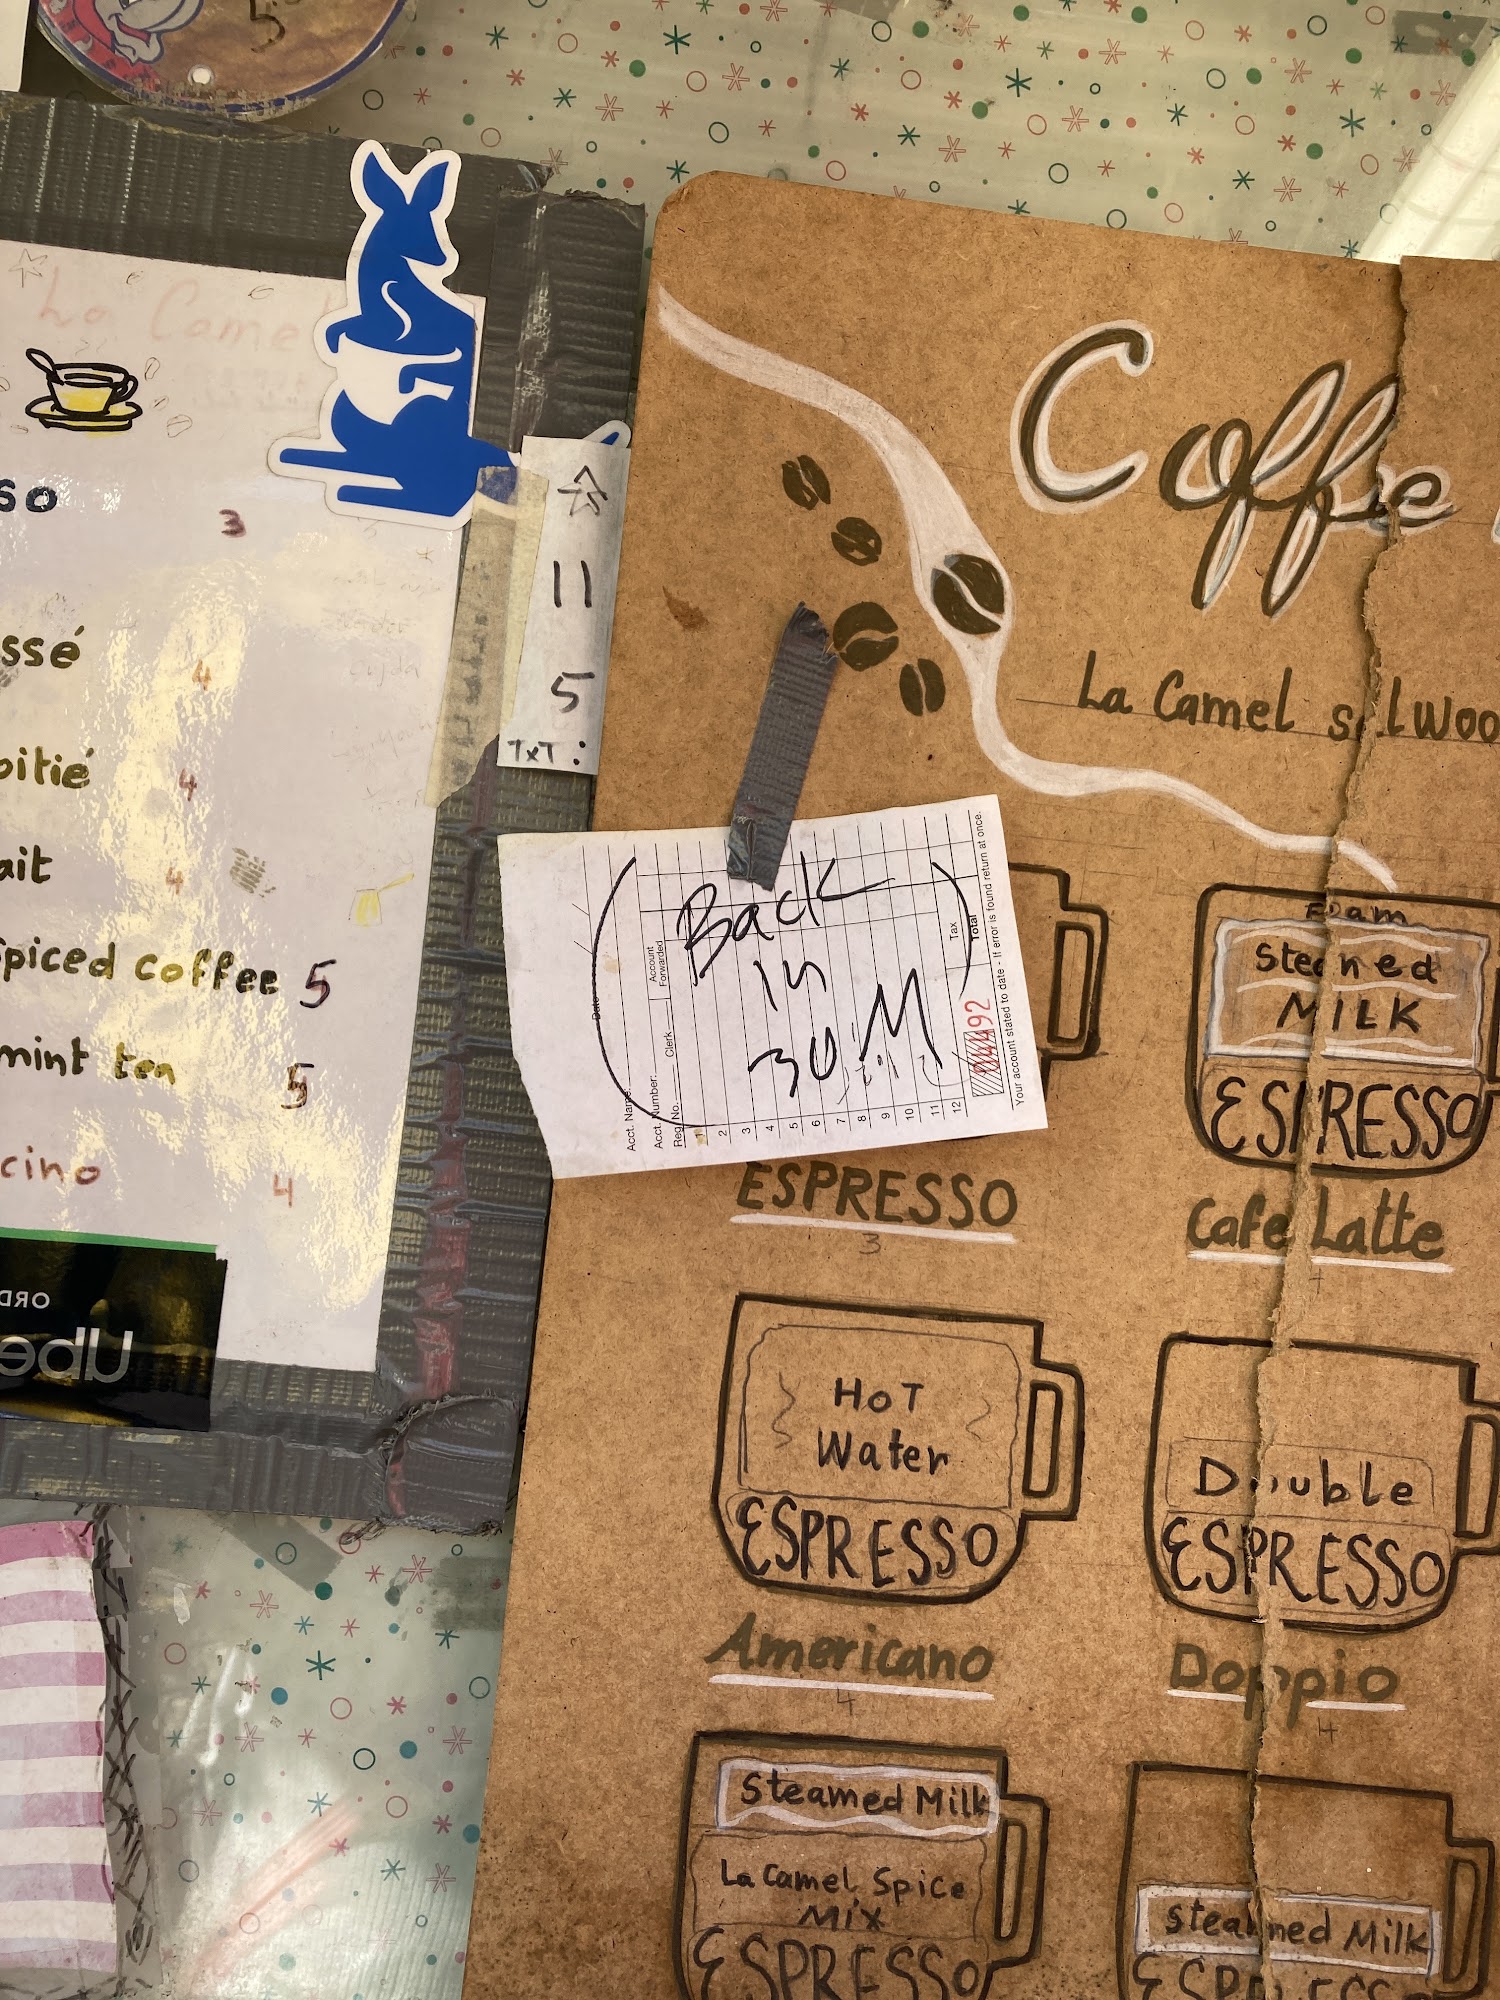 5
La Camel
sso
3
ssé
4
oitié
4
ait
4
spiced coffee 5
mint tea
5
cino
4
ORD
Ube
11
5
TxT:
Coffee
La Camel
Back
in
30 Min
Date
Acct. Name:
Acct. Number:
Reg. No.
Clerk
Account
Forwarded
1
2
3
4
5
6
7
8
9
10
11
12
Tax
Total
92
Your account stated to date - If error is found return at once.
ESPRESSO
3
Foam
Steamed
MILK
ESPRESSO
Cafe Latte
HoT
Water
ESPRESSO
Americano
4
Double
ESPRESSO
Doppio
4
Steamed Milk
La Camel Spice
Mix
ESPRESSO
Steamed Milk
ESPRESSO